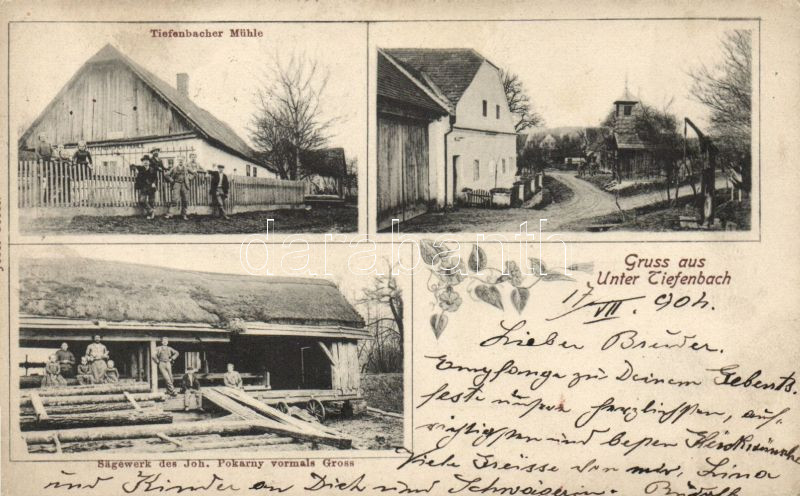 Tiefenbacher Mühle
Gruss aus
Unter Tiefenbach
17/VII. 904.
Lieber Bruder.
Empfange zu Deinem Geburts
feste unsere herzlichsten, auf-
richtigsten und besten Glückwünsche
Viele Grüsse von mir, Lina
und Kinder an Dich und Schwägerin.
Sägewerk des Joh. Pokarny vormals Gross
darabanth